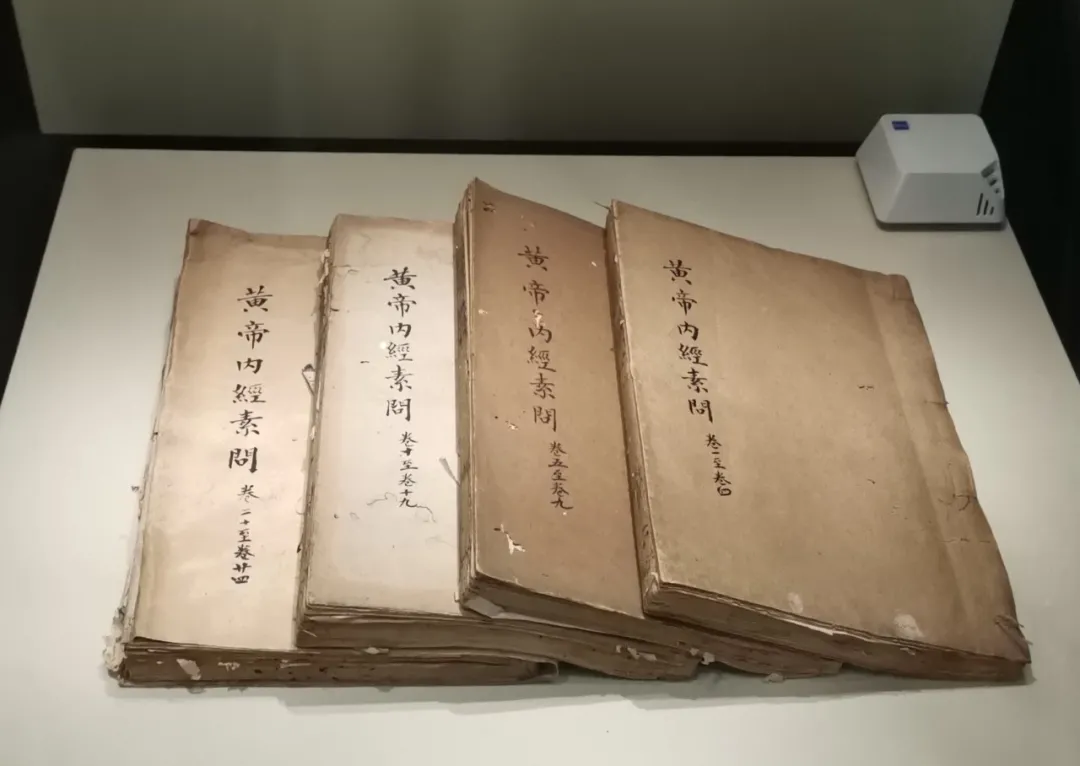 黃帝內經素問 卷一至卷四
黃帝內經素問 卷五至卷九
黃帝內經素問 卷十至卷十九
黃帝內經素問 卷二十至卷廿四